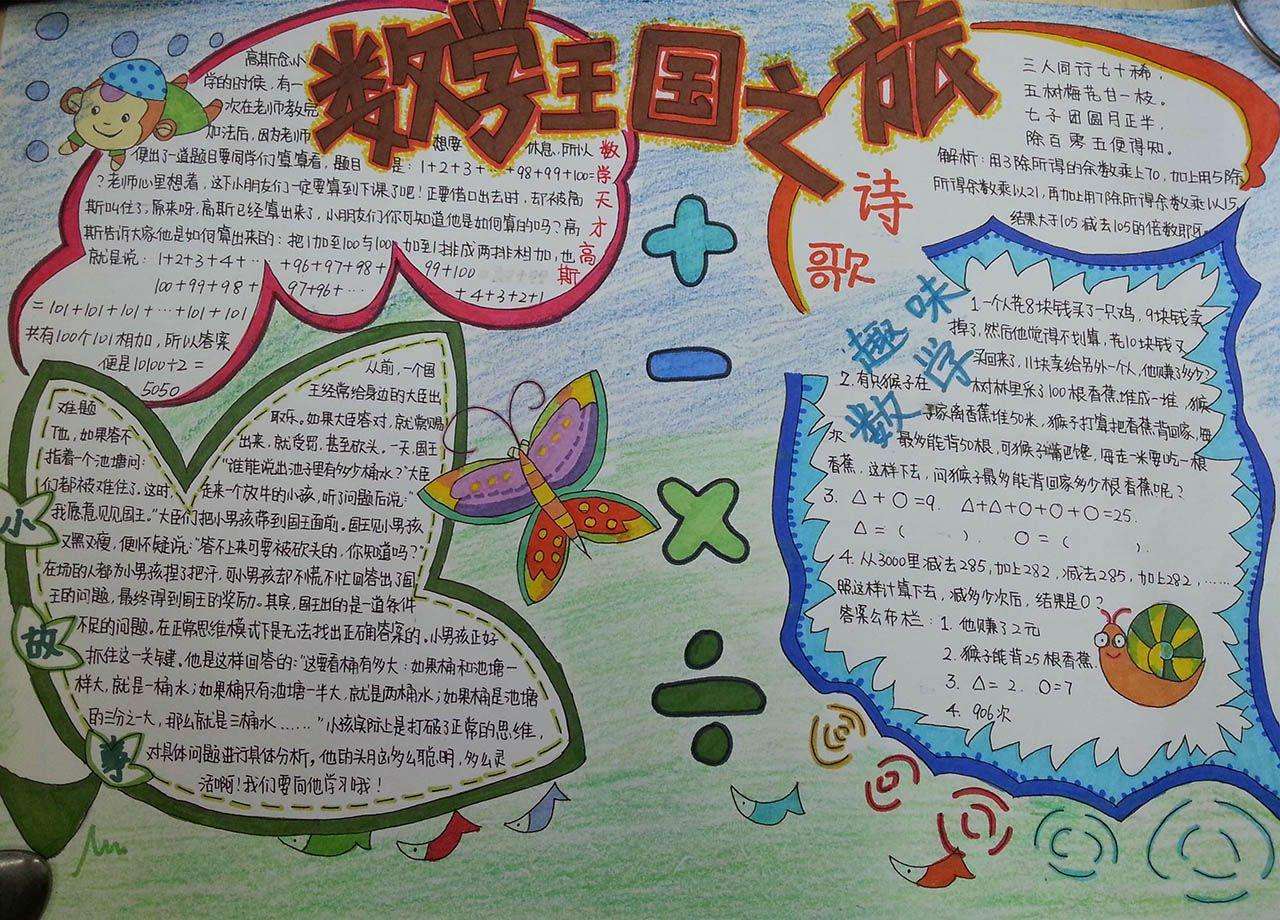 数学王国之旅
高斯念小
学的时候,有一
次在老师教完
加法后,因为老师
想要
休息,所以
便出了一道题目要同学们算算看,题目
是:1+2+3+…+98+99+100=
?老师心里想着,这下小朋友们一定要算到下课了吧!正要借口出去时,却被高
斯叫住了,原来呀,高斯已经算出来了,小朋友们你可知道他是如何算的吗?高
斯告诉大家他是如何算出来的:把1加至100与100
加到1排成两排相加,也
就是说:1+2+3+4+…
+96+97+98+
99+100
100+99+98+
97+96+…
+4+3+2+1
=101+101+101+…+101+101
共有100个101相加,所以答案
便是10100÷2=
5050
数学天才高斯
三人同行七十稀,
五树梅花廿一枝。
七子团圆月正半,
除百零五便得知。
解析:用3除所得的余数乘上70,加上用5除
所得余数乘以21,再加上用7除所得余数乘以15,
结果大于105减去105的倍数即
诗
歌
小
故
事
从前,一个国
王经常给身边的大臣出
难题
取乐。如果大臣答对,就常赐
T他,如果答不
出来,就受罚,甚至砍头。一天,国王
指着一个池塘问:
"谁能说出池子里有多少桶水?"大臣
们都被难住了。这时,
走来一个放牛的小孩,听了问题后说:"
我愿意见见国王。"大臣们把小男孩带到国王面前。国王见小男孩
又黑又瘦,便怀疑说:"答不上来可要被砍头的,你知道吗?"
在场的人都为小男孩捏了把汗,可小男孩却不慌不忙回答出了国
王的问题,最终得到国王的奖励。其实,国王出的是一道条件
不足的问题。在正常思维模式下是无法找出正确答案的。小男孩正好
抓住这一关键,他是这样回答的:"这要看桶有多大:如果桶和池塘一
样大,就是一桶水;如果桶只有池塘一半大,就是两桶水;如果桶是池塘
的三分之一大,那么就是三桶水……"小孩实际上是打破了正常的思维,
对具体问题进行具体分析。他的头脑多么聪明,多么灵
活啊!我们要向他学习哦!
趣味
数学
1.一个人花8块钱买了一只鸡,9块钱卖
掉了,然后他觉得不划算,花10块钱又
买回来了,11块卖给另外一个人,他赚了多少?
2.有只猴子在
树林里采了100根香蕉堆成一堆,猴
子家离香蕉堆50米,猴子打算把香蕉背回家,每
次
最多能背50根,可猴子嘴巴馋,每走一米要吃一根
香蕉,这样下去,问猴子最多能背回家多少根香蕉呢?
3. △+○=9. △+△+○+○+○=25.
△=( ). ○=( ).
4.从3000里减去285,加上282,减去285,加上282,……
照这样计算下去,减多少次后,结果是0?
答案公布栏:1.他赚了2元
2.猴子能背25根香蕉
3. △=2. ○=7
4. 906次